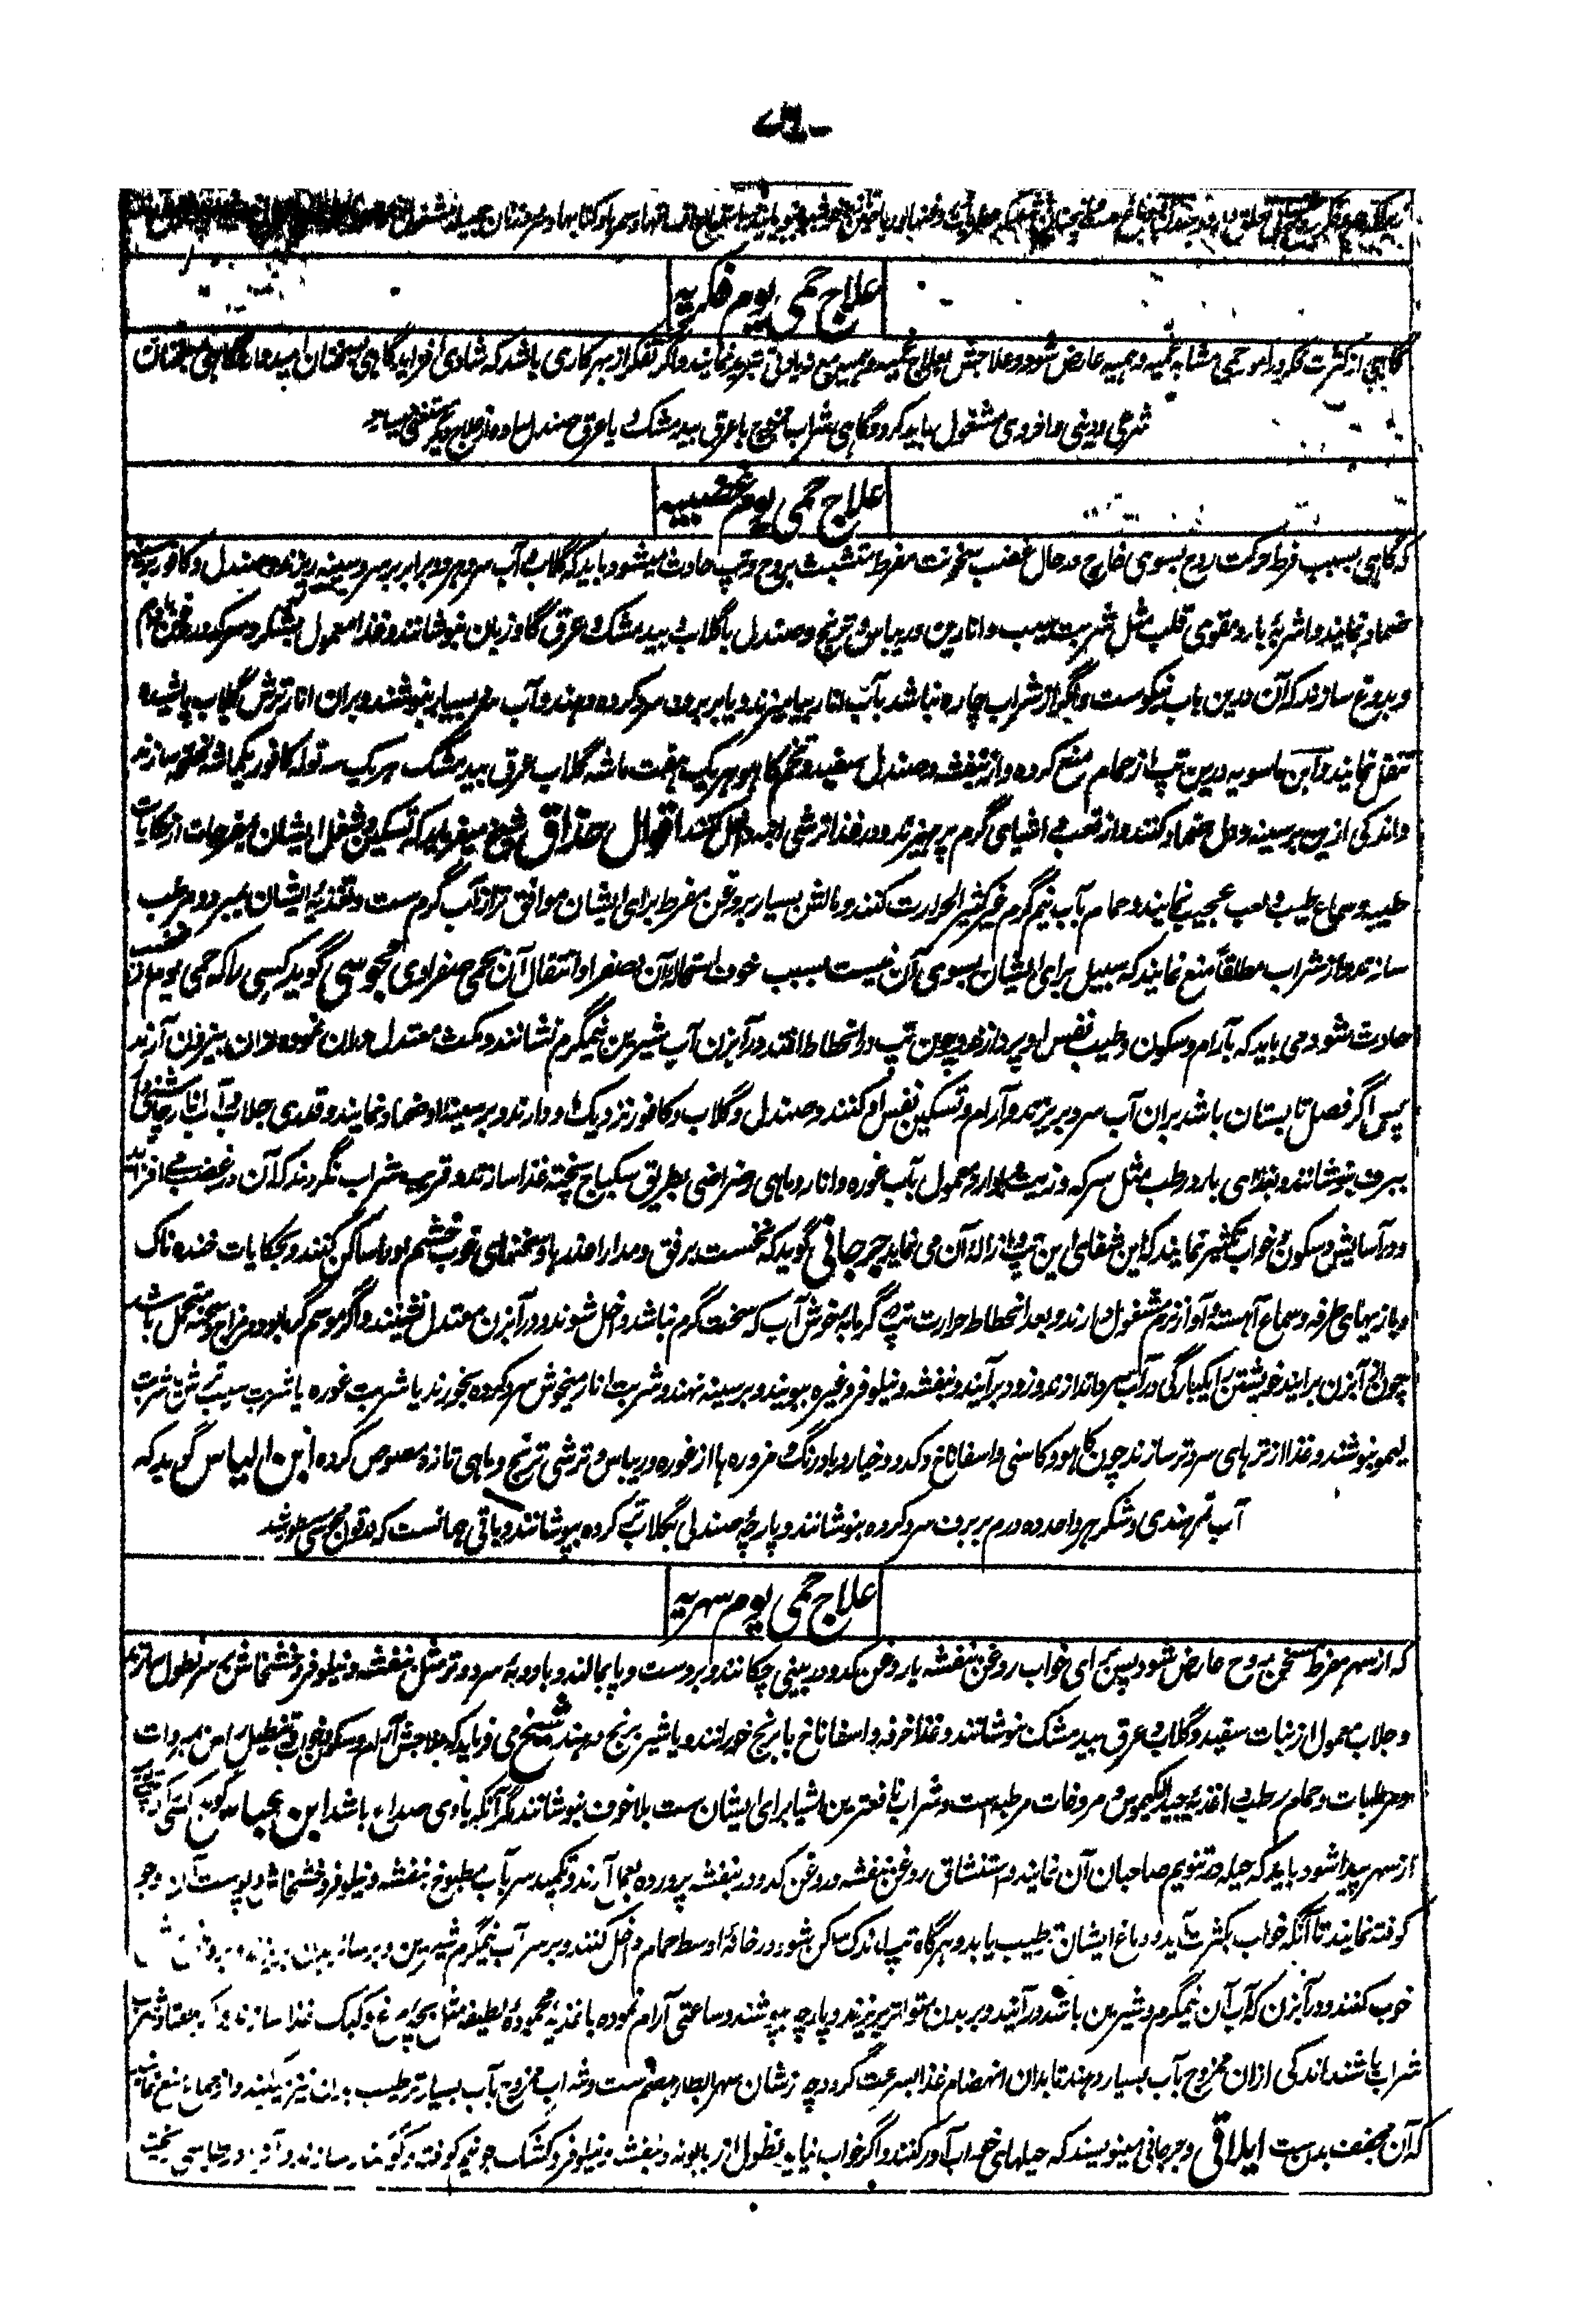 علاج حمی یوم فکریه
گاهی از کثرت فکر در امور حمی مشابه غمیه و همیه عارض شود و علاجش بعلاج غمیه و همیه مع زیادتی تبرید نمایند و اگر تفکر از بهر کاری باشد که شادی افزاید گاهی بسخنان امیدوار و گاهی بسخنان
شرعی و دینی و اخروی مشغول باید کرد و گاهی شراب ممزوج با عرق بید مشک یا عرق صندل ساده از علاج دیگر مستغنی میسازد
علاج حمی یوم غضبیه
که گاهی بسبب فرط حرکت روح بسوی خارج در حال غضب سخونت مفرط متشبث بروح و تپ حادث میشود باید که گلاب و آب سرد هر دو برابر بر سر و سینه ریزند و صندل و کافور بر سینه
ضماد نمایند و اشربهٔ بارد مقوی قلب مثل شربت سیب و انارین و ریباس و ترنج و صندل با گلاب و بید مشک و عرق گاو زبان بنوشانند و غذا معمول بشکر و سرکه و روغن بادام
و بدوغ سازند که آن درین باب نیکوست و اگر از شراب چاره نباشد بآب انار بیامیزند و یا بر برف سرد کرده دهند و آب سرد بسیار بنوشند و بران انار ترش گلاب پاشیده
تنقل نمایند و ابن ماسویه درین تپ از حمام منع کرده و از بنفشه و صندل سفید و تخم کاهو هر یک هفت ماشه گلاب عرق بید مشک هر یک سه توله کافور یکماشه لخلخه سازند
و اندکی ازین بر سینه و دل ضماد کنند و از تعب و اشیای گرم پرهیزند و در غذا ترشی داخل کنند اقوال حذاق شیخ میفرماید که تسکین و شغل ایشان بمفرحات از حکایات
طیبه و سماع طیب و لعب عجیب نمایند و حمام بآب نیم گرم غیر کثیر الحرارت کنند و مالش بسیار بروغن مفرط برای ایشان موافق تر از آب گرم ست و تغذیهٔ ایشان بمبرد و مرطب
سازند و از شراب مطلقاً منع نمایند که سبیل برای ایشان بسوی آن نیست بسبب خوف استحالهٔ آن بصفرا و انتقال آن بحمی صفراوی مجوسی گوید کسی را که حمی یوم از غضب
حادث شود می باید که بآرام و سکون و طیب نفس او پردازند و چون تپ در انحطاط افتد در آبزن آب شیرین نیمگرم نشانند و مکث معتدل دران نموده ازان بیرون آرند
پس اگر فصل تابستان باشد بران آب سرد بریزند و آرام و تسکین نفس او کنند و صندل و گلاب و کافور نزدیک او دارند و بر سینهٔ او ضماد نمایند و قدری جلاب و آب انار
ببرف بنوشانند و بغذای بارد رطب مثل سرکه و زیت و بوارد معمول بآب غوره و انار و ماهی رضراضی بطریق سکباج پخته غذا سازند و قریب شراب نگردند که آن در غضب می افزاید
و در آسایش و سکون و خواب تکثیر نمایند که این شفای این تپ و ازالهٔ آن می نماید جرجانی گوید که نخست برفق و مدارا عذرها و سخنهای خوب خشم او را ساکن کنند و بحکایات خنده ناک
و بازیهای طرفه و سماع آهسته و آواز نرم مشغول دارند و بعد انحطاط حرارت تپ بگرمابه خوش آب که سخت گرم نباشد داخل شوند و در آبزن معتدل نشینند و اگر موسم گرما بود و مزاج و سحنه متحمل باشد
چون از آبزن برایند خویشتن را یکبارگی در آب سرد اندازند و زود برآیند و بنفشه و نیلوفر و غیره ببویند و بر سینه نهند و شربت انار میخوش سرد کرده بخورند یا شربت غوره یا شربت سیب ترش یا شربت
لیمو بنوشند و غذا از ترهای سرد تر سازند چون کاهو و کاسنی و اسفاناخ و کدو و خیار و بادرنگ و مزوره ها از غوره و ریباس و ترشی ترنج و ماهی تازه مصوص کرده ابن الیاس گوید که
آب تمرهندی و شکر هر واحد ده درم بر برف سرد کرده بنوشانند و پارچهٔ صندلی بگلاب تر کرده بپوشانند و باقی همانست که در قول مجوسی مسطور شد
علاج حمی یوم سهریه
که از سهر مفرط مسخن روح عارض شود پس برای خواب روغن بنفشه یا روغن کدو در بینی چکانند و بر دست و پا بمالند و بادویهٔ سرد و تر مثل بنفشه و نیلوفر و خشخاش بر سر نطول سازند
و جلاب معمول از نبات سفید و گلاب و عرق بید مشک نوشانند و غذا خرفه و اسفاناخ با برنج خورانند و یا شیر برنج دهند شیخ می فرماید که علاجش آرام و سکون و خواب و تنطیل راس بمبردات
و مرطبات و حمام رطب و اغذیهٔ جید الکیموس و مروخات مرطبه ست و شراب نافعترین اشیا برای ایشان ست بلاخوف بنوشانند مگر آنکه با وی صداع باشد ابن
از سهر پیدا شود باید که حیله در تنویم صاحبان آن نمایند و استنشاق روغن بنفشه و روغن کدو در بنفشه پرورده بعمل آرند و تکمید سر بآب مطبوخ بنفشه و نیلوفر و خشخاش و پوست آن و جو
کوفته نمایند تا آنکه خواب بکثرت آید و دماغ ایشان ترطیب یابد و هرگاه تپ اندک ساکن شود در خانهٔ اوسط حمام داخل کنند و بر سر آب نیمگرم شیرین
خوب کنند و در آبزن که آب آن نیمگرم و شیرین باشد درآیند و بر بدن متواتر بریزند و پارچه بپوشند و ساعتی آرام نموده باغذیهٔ محمودهٔ لطیفه مثل بچهٔ مرغ و کبک غذا سازند و اگر معتاد شرب
شراب باشند اندکی ازان ممزوج بآب بسیار دهند تا بدان انهضام غذا بسرعت گردد چه از شان سهر ابطاء هضم ست و شراب ممزوج بآب بسیار ترطیب بدن نیز میکند و از جماع منع نمایند
که آن مجفف بدن ست ایلاقی و جرجانی مینویسند که حیلهای خواب آور کنند و اگر خواب نیاید نطول از بابونه و بنفشه و نیلوفر و کشک جو نیم کوفته و کوکنار سازند